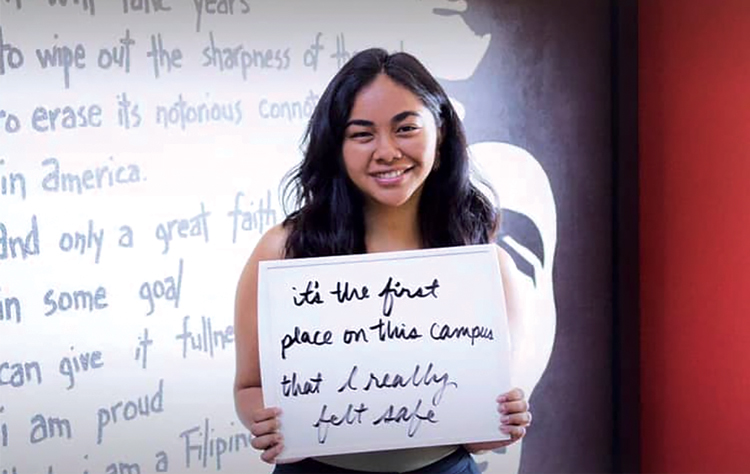 will take years
to wipe out the sharpness of
to erase its notorious
in america.
and only a great faith
in some goal
can give it
i am proud
am a
it's the first
place on this campus
that I really
felt safe